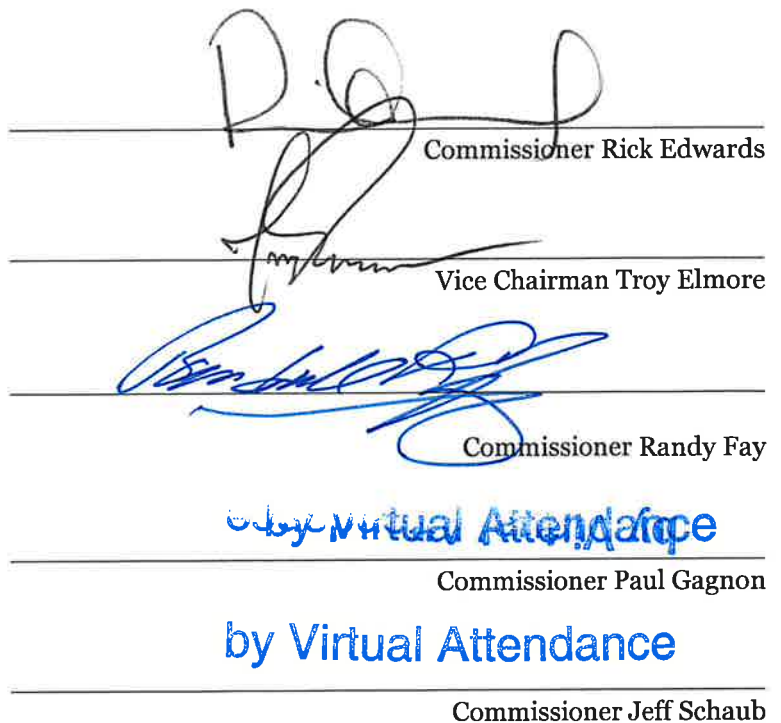 Commissioner Rick Edwards
Vice Chairman Troy Elmore
Commissioner Randy Fay
by Virtual Attendance
Commissioner Paul Gagnon
by Virtual Attendance
Commissioner Jeff Schaub